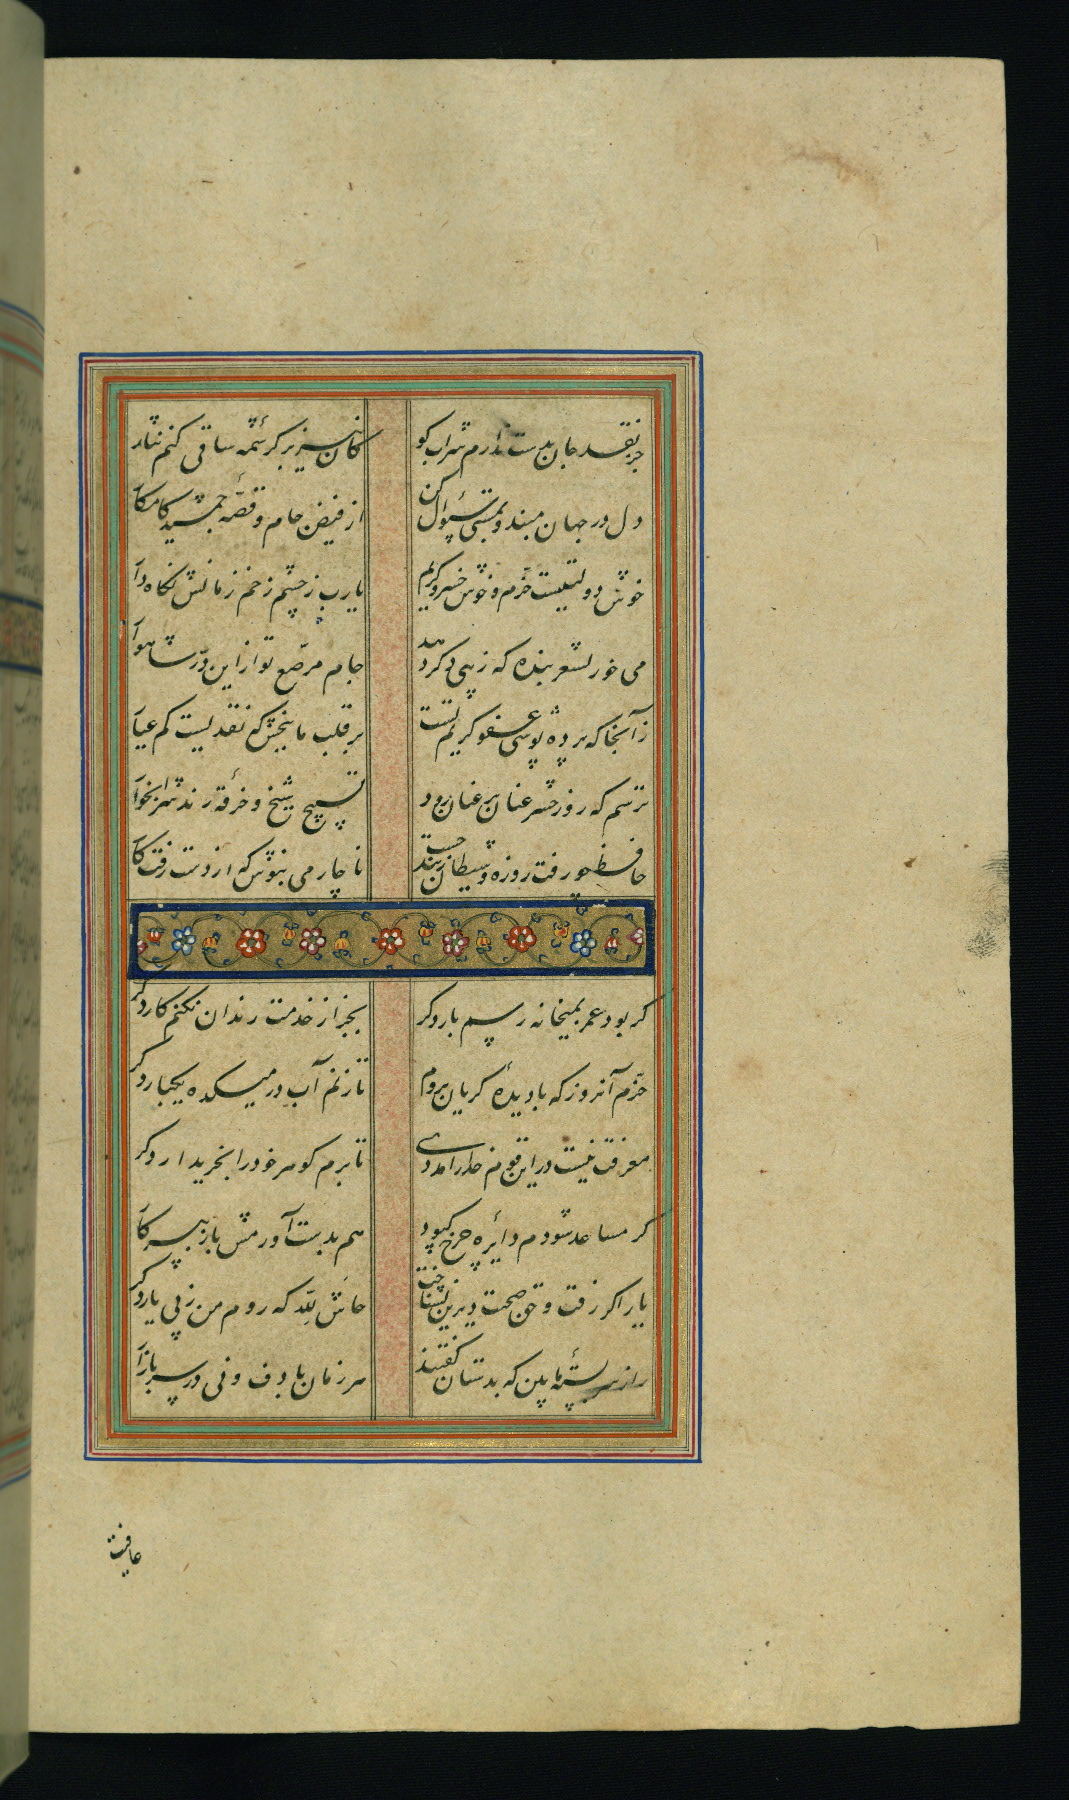 جز نقد جان بدست ندارم شراب کو کان نیز بر کرشمه ساقی کنم نثار
دل در جهان مبند و بمستی سئوال کن از فیض جام و قصّه جمشید کامکار
خوش دولتیست خرّم و خوش خسرو کریم یارب ز چشم زخم زمانش نگاه دار
می خور بشعر بنده که زیبی دگر دهد جام مرصّع تو ازاین درّ شاهوار
ز آنجا که پرده پوشی عفو کریم تست بر قلب ما ببخش که نقدیست کم عیار
ترسم که روز حشر عنان بر عنان رود تسبیح شیخ و خرقهٔ رند شرابخوار
حافظ چو رفت روزه و ناچار می بنوش که از دست رفت کار
کر بود عمر بمیخانه رسم بار دکر بجز از خدمت رندان نکنم کار دکر
خرّم آنروز که با دیدهٔ کریان بروم تا زنم آب در میکده یکبار دکر
معرفت نیست در این قوم خدا را مددی تا برم کوهر خود را بخریدار دکر
کر مساعد شودم دایرهٔ چرخ کبود هم بدست آورمش باز بپرکار
یار اکر رفت و حق صحبت دیرین نشناخت حاش للّه که روم من ز پی یار دکر
راز سربستهٔ ما بین که بدستان کفتند هر زمان با دف و نی بر سر بازار
عافیت